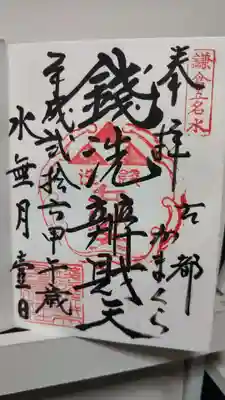 鎌倉五名水
奉拝
古都
かまくら
錢洗辨財天
平成貳拾六甲午歳
水無月壹日